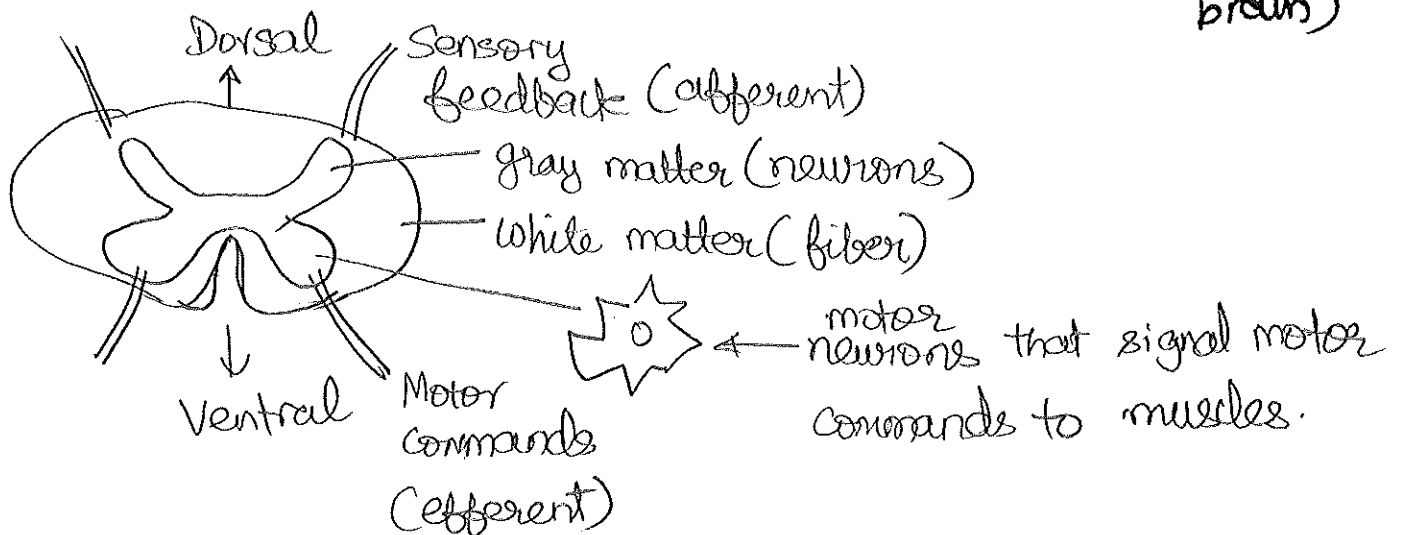 brain)
Dorsal
Sensory
feedback (afferent)
gray matter (neurons)
white matter (fiber)
motor
neurons that signal motor
commands to muscles.
Ventral
Motor
commands
(efferent)